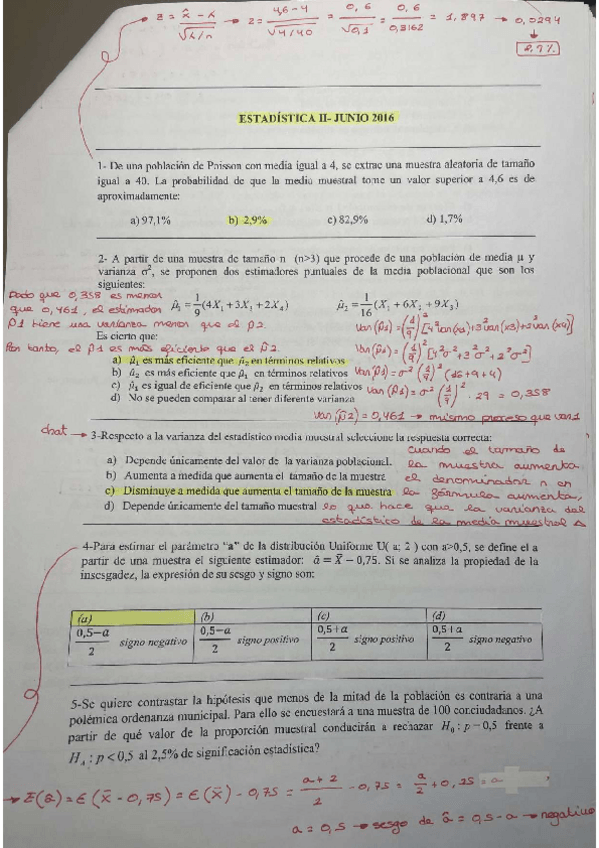 z = x̂ - λ / √λ/n → z = 4,6 - 4 / √4/40 = 0,6 / √0,1 = 0,6 / 0,3162 = 1,897 → 0,0294
↓
2,9%
ESTADÍSTICA II- JUNIO 2016
1- De una población de Poisson con media igual a 4, se extrae una muestra aleatoria de tamaño
igual a 40. La probabilidad de que la media muestral tome un valor superior a 4,6 es de
aproximadamente:
a) 97,1% b) 2,9% c) 82,9% d) 1,7%
2- A partir de una muestra de tamaño n (n>3) que procede de una población de media μ y
varianza σ², se proponen dos estimadores puntuales de la media poblacional que son los
siguientes:
μ̂₁ = 1/9 (4X₁ + 3X₃ + 2X₄) μ̂₂ = 1/16 (X₁ + 6X₂ + 9X₃)
Dado que 0,358 es menor
que 0,461, el estimador
μ̂1 tiene una varianza menor que el μ̂2.
Por tanto, el μ̂1 es más eficiente que el μ̂2
Es cierto que:
a) μ̂₁ es más eficiente que μ̂₂ en términos relativos
b) μ̂₂ es más eficiente que μ̂₁ en términos relativos
c) μ̂₁ es igual de eficiente que μ̂₂ en términos relativos
d) No se pueden comparar al tener diferente varianza
Var(μ̂1) = (1/9)² [4²σ² + 3²σ² + 2²σ²]
Var(μ̂1) = σ² (1/9)² (16 + 9 + 4)
Var(μ̂1) = σ² (1/9)² · 29 = 0,358
Var(μ̂2) = 0,461 → mismo proceso que var1
chat → 3-Respecto a la varianza del estadístico media muestral seleccione la respuesta correcta:
a) Depende únicamente del valor de la varianza poblacional.
b) Aumenta a medida que aumenta el tamaño de la muestra
c) Disminuye a medida que aumenta el tamaño de la muestra
d) Depende únicamente del tamaño muestral
cuando el tamaño de
la muestra aumenta,
el denominador n en
la fórmula aumenta,
lo que hace que la varianza del
estadístico de la media muestral ↓
4-Para estimar el parámetro "a" de la distribución Uniforme U( a; 2 ) con a>0,5, se define el a
partir de una muestra el siguiente estimador: â = X̄ - 0,75. Si se analiza la propiedad de la
insesgadez, la expresión de su sesgo y signo son:
(a) (b) (c) (d)
0,5-a / 2 signo negativo 0,5-a / 2 signo positivo 0,5+a / 2 signo positivo 0,5+a / 2 signo negativo
5-Se quiere contrastar la hipótesis que menos de la mitad de la población es contraria a una
polémica ordenanza municipal. Para ello se encuestará a una muestra de 100 conciudadanos. ¿A
partir de qué valor de la proporción muestral conducirán a rechazar H₀ : p = 0,5 frente a
H_A : p < 0,5 al 2,5% de significación estadística?
→ E(â) = E(x̄ - 0,75) = E(x̄) - 0,75 = a+2 / 2 - 0,75 = a/2 + 0,25 = a
a = 0,5 → sesgo de â = 0,5 - a → negativo